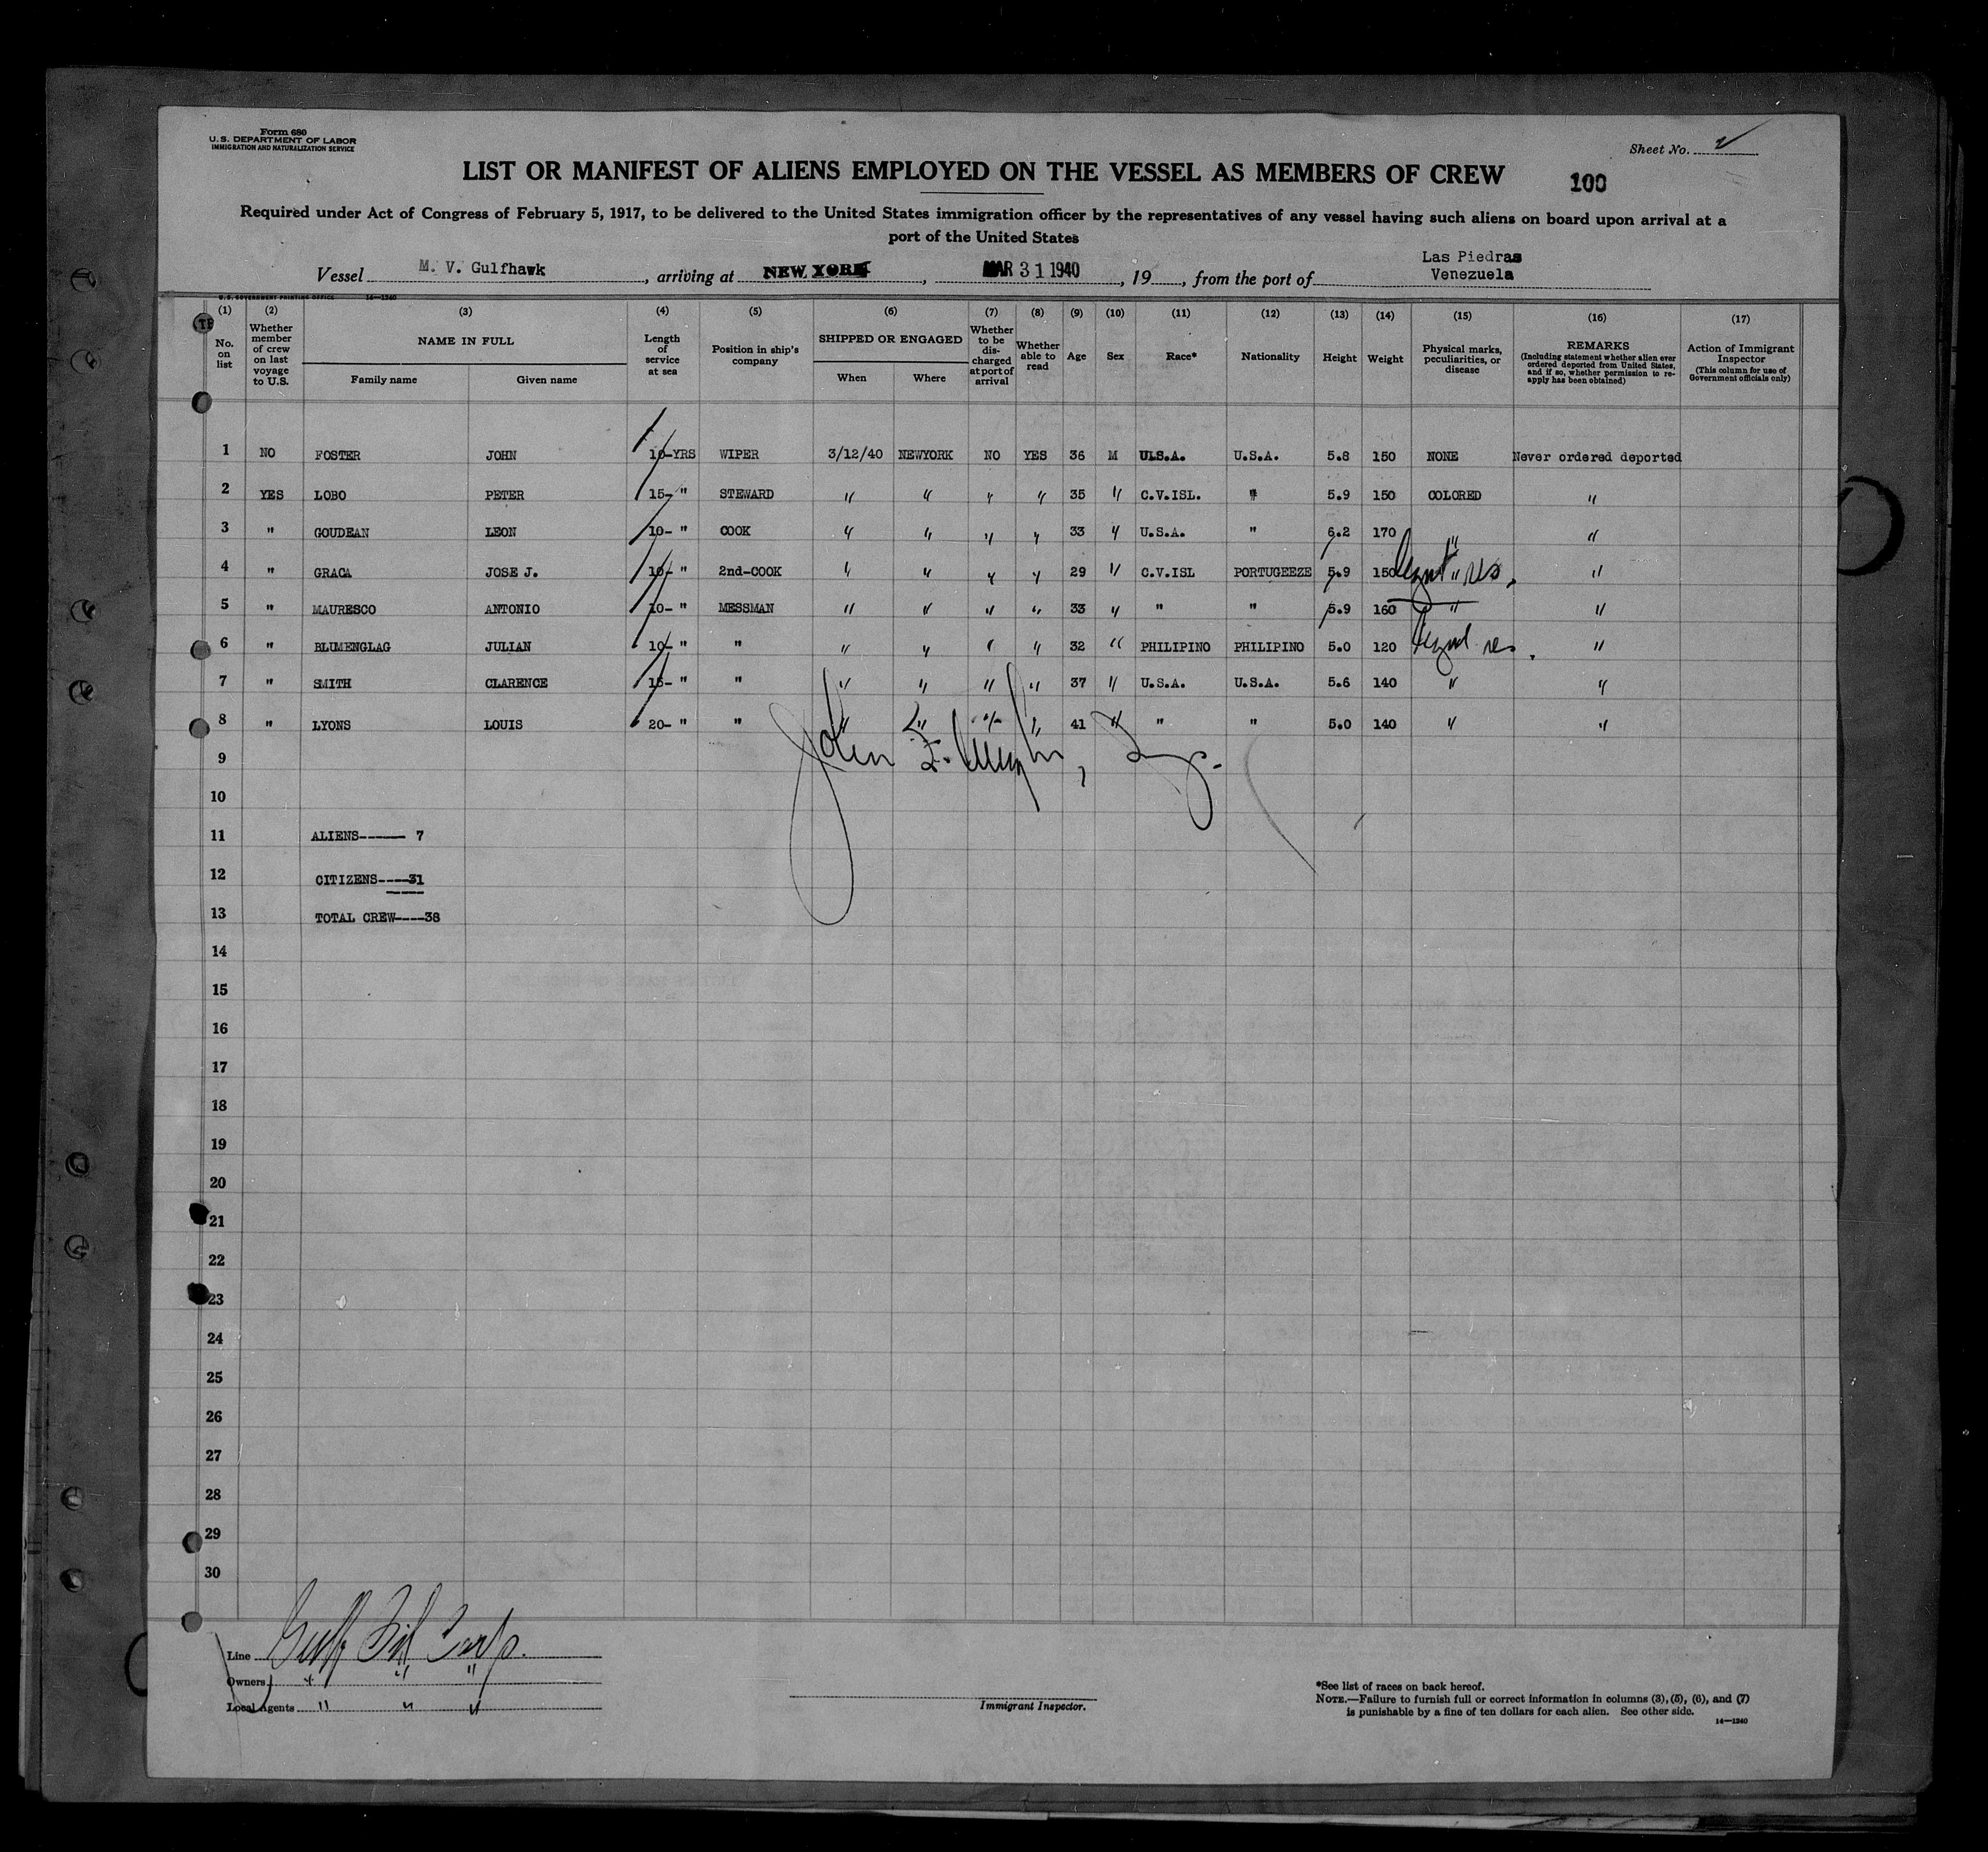 Form 680
U.S. DEPARTMENT OF LABOR
IMMIGRATION AND NATURALIZATION SERVICE
Sheet No. 2
LIST OR MANIFEST OF ALIENS EMPLOYED ON THE VESSEL AS MEMBERS OF CREW 100
Required under Act of Congress of February 5, 1917, to be delivered to the United States immigration officer by the representatives of any vessel having such aliens on board upon arrival at a
port of the United States
Vessel M. V. Gulfhawk, arriving at NEW YORK, MAR 31 1940, 19, from the port of Las Piedras Venezuela
U.S. GOVERNMENT PRINTING OFFICE 14—1240
(1) (2) (3) (4) (5) (6) (7) (8) (9) (10) (11) (12) (13) (14) (15) (16) (17)
No. on list
Whether member of crew on last voyage to U.S.
NAME IN FULL
Family name Given name
Length of service at sea
Position in ship's company
SHIPPED OR ENGAGED
When Where
Whether to be discharged at port of arrival
Whether able to read
Age Sex Race* Nationality Height Weight
Physical marks, peculiarities, or disease
REMARKS
(Including statement whether alien ever ordered deported from United States, and if so, whether permission to reapply has been obtained)
Action of Immigrant Inspector
(This column for use of Government officials only)
1 NO FOSTER JOHN 10-YRS WIPER 3/12/40 NEWYORK NO YES 36 M U.S.A. U.S.A. 5.8 150 NONE Never ordered deported
2 YES LOBO PETER 15- " STEWARD " " " " 35 " C.V.ISL. " 5.9 150 COLORED "
3 " GOUDEAN LEON 10- " COOK " " " " 33 " U.S.A. " 6.2 170 " "
4 " GRACA JOSE J. 10- " 2nd-COOK " " " " 29 " C.V.ISL PORTUGEEZE 5.9 150 " res. "
5 " MAURESCO ANTONIO 10- " MESSMAN " " " " 33 " " " 5.9 160 " "
6 " BLUMENGLAG JULIAN 10- " " " " " " 32 " PHILIPINO PHILIPINO 5.0 120 res. "
7 " SMITH CLARENCE 15- " " " " " " 37 " U.S.A. U.S.A. 5.6 140 " "
8 " LYONS LOUIS 20- " " " " " " 41 " " " 5.0 140 " "
John
9
10
11 ALIENS------ 7
12 CITIZENS----31
13 TOTAL CREW----38
14
15
16
17
18
19
20
21
22
23
24
25
26
27
28
29
30
Line Gulf Oil Corp.
Owners " " "
Local Agents " " "
Immigrant Inspector.
*See list of races on back hereof.
NOTE.—Failure to furnish full or correct information in columns (3), (5), (6), and (7)
is punishable by a fine of ten dollars for each alien. See other side.
14—1240